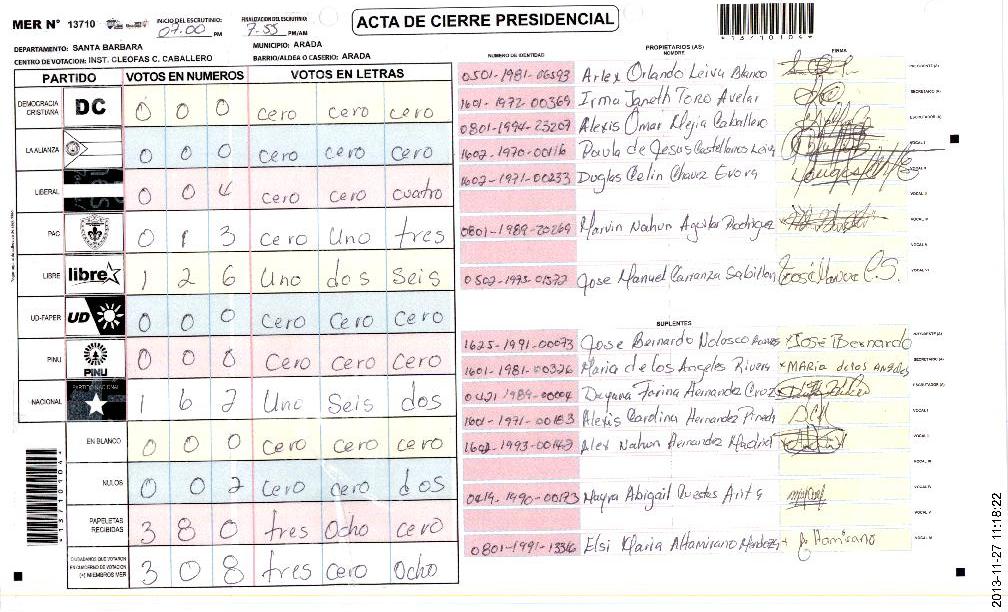 MER N° 13710
INICIO DEL ESCRUTINIO: 07:00 PM
FINALIZACION DEL ESCRUTINIO: 7-55 PM/AM
ACTA DE CIERRE PRESIDENCIAL
*13710104*
DEPARTAMENTO: SANTA BARBARA
MUNICIPIO: ARADA
CENTRO DE VOTACION: INST. CLEOFAS C. CABALLERO
BARRIO/ALDEA O CASERIO: ARADA
PARTIDO VOTOS EN NUMEROS VOTOS EN LETRAS
DEMOCRACIA CRISTIANA DC 0 0 0 cero cero cero
LA ALIANZA 0 0 0 cero cero cero
LIBERAL 0 0 4 cero cero cuatro
PAC 0 1 3 cero Uno tres
LIBRE libre 1 2 6 Uno dos Seis
UD-FAPER UD 0 0 0 Cero Cero Cero
PINU PINU 0 0 0 Cero Cero Cero
NACIONAL PARTIDO NACIONAL 1 6 2 Uno Seis dos
EN BLANCO 0 0 0 cero cero cero
NULOS 0 0 2 cero cero dos
PAPELETAS RECIBIDAS 3 8 0 tres Ocho cero
CIUDADANOS QUE VOTARON EN CUADERNO DE VOTACION (+) MIEMBROS MER 3 0 8 tres cero Ocho
PROPIETARIOS (AS)
NUMERO DE IDENTIDAD NOMBRE FIRMA
0501-1981-06593 Arlex Orlando Leiva Blanco PRESIDENTE (A)
1601-1972-00369 Irma Janeth Toro Avelar SECRETARIO (A)
0801-1994-23207 Alexis Omar Mejia Caballero ESCRUTADOR (A)
1602-1970-00116 Paula de Jesus Castellanos Leiva VOCAL I
1602-1971-00233 Duglas Celin Chavez Evora VOCAL II
VOCAL III
0801-1989-20269 Marvin Nahun Aguilar Rodriguez VOCAL IV
VOCAL V
0502-1993-01572 Jose Manuel Carranza Sabillon VOCAL VI
SUPLENTES
1625-1991-00073 Jose Bernardo Nolasco José Bernardo PRESIDENTE (A)
1601-1981-00326 Maria de los Angeles Rivera MARIA de los ANGELES SECRETARIO (A)
0421-1989-00004 Dayana Farina Hernandez Cruz ESCRUTADOR (A)
1601-1971-00183 Alexis Carolina Hernandez Pineda VOCAL I
1602-1993-00142 Alex Nahun Hernandez Madrid VOCAL II
VOCAL III
0419-1990-00173 Mayra Abigail VOCAL IV
VOCAL V
0801-1991-13316 Elsi Maria Altamirano Mendoza VOCAL VI
*13710104*
2013-11-27 11:18:22